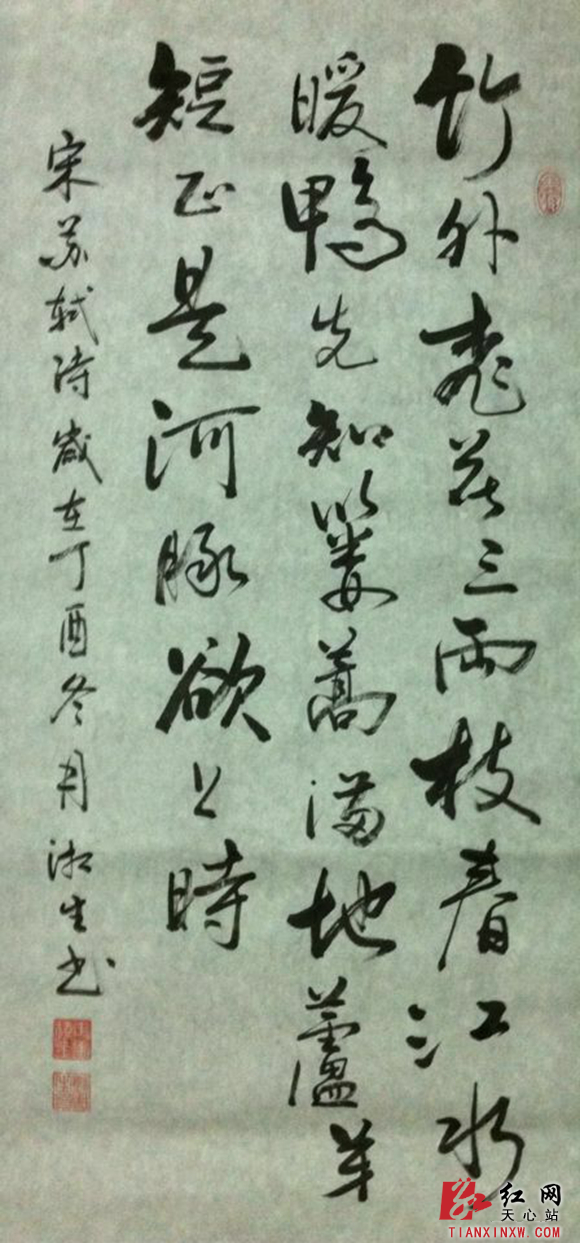 竹外桃花三兩枝春江水
暖鴨先知蔞蒿滿地蘆芽
短正是河豚欲上時
宋苏轼诗歲在丁酉冬月湘生书
红网
天心站
TIANXINXW.COM